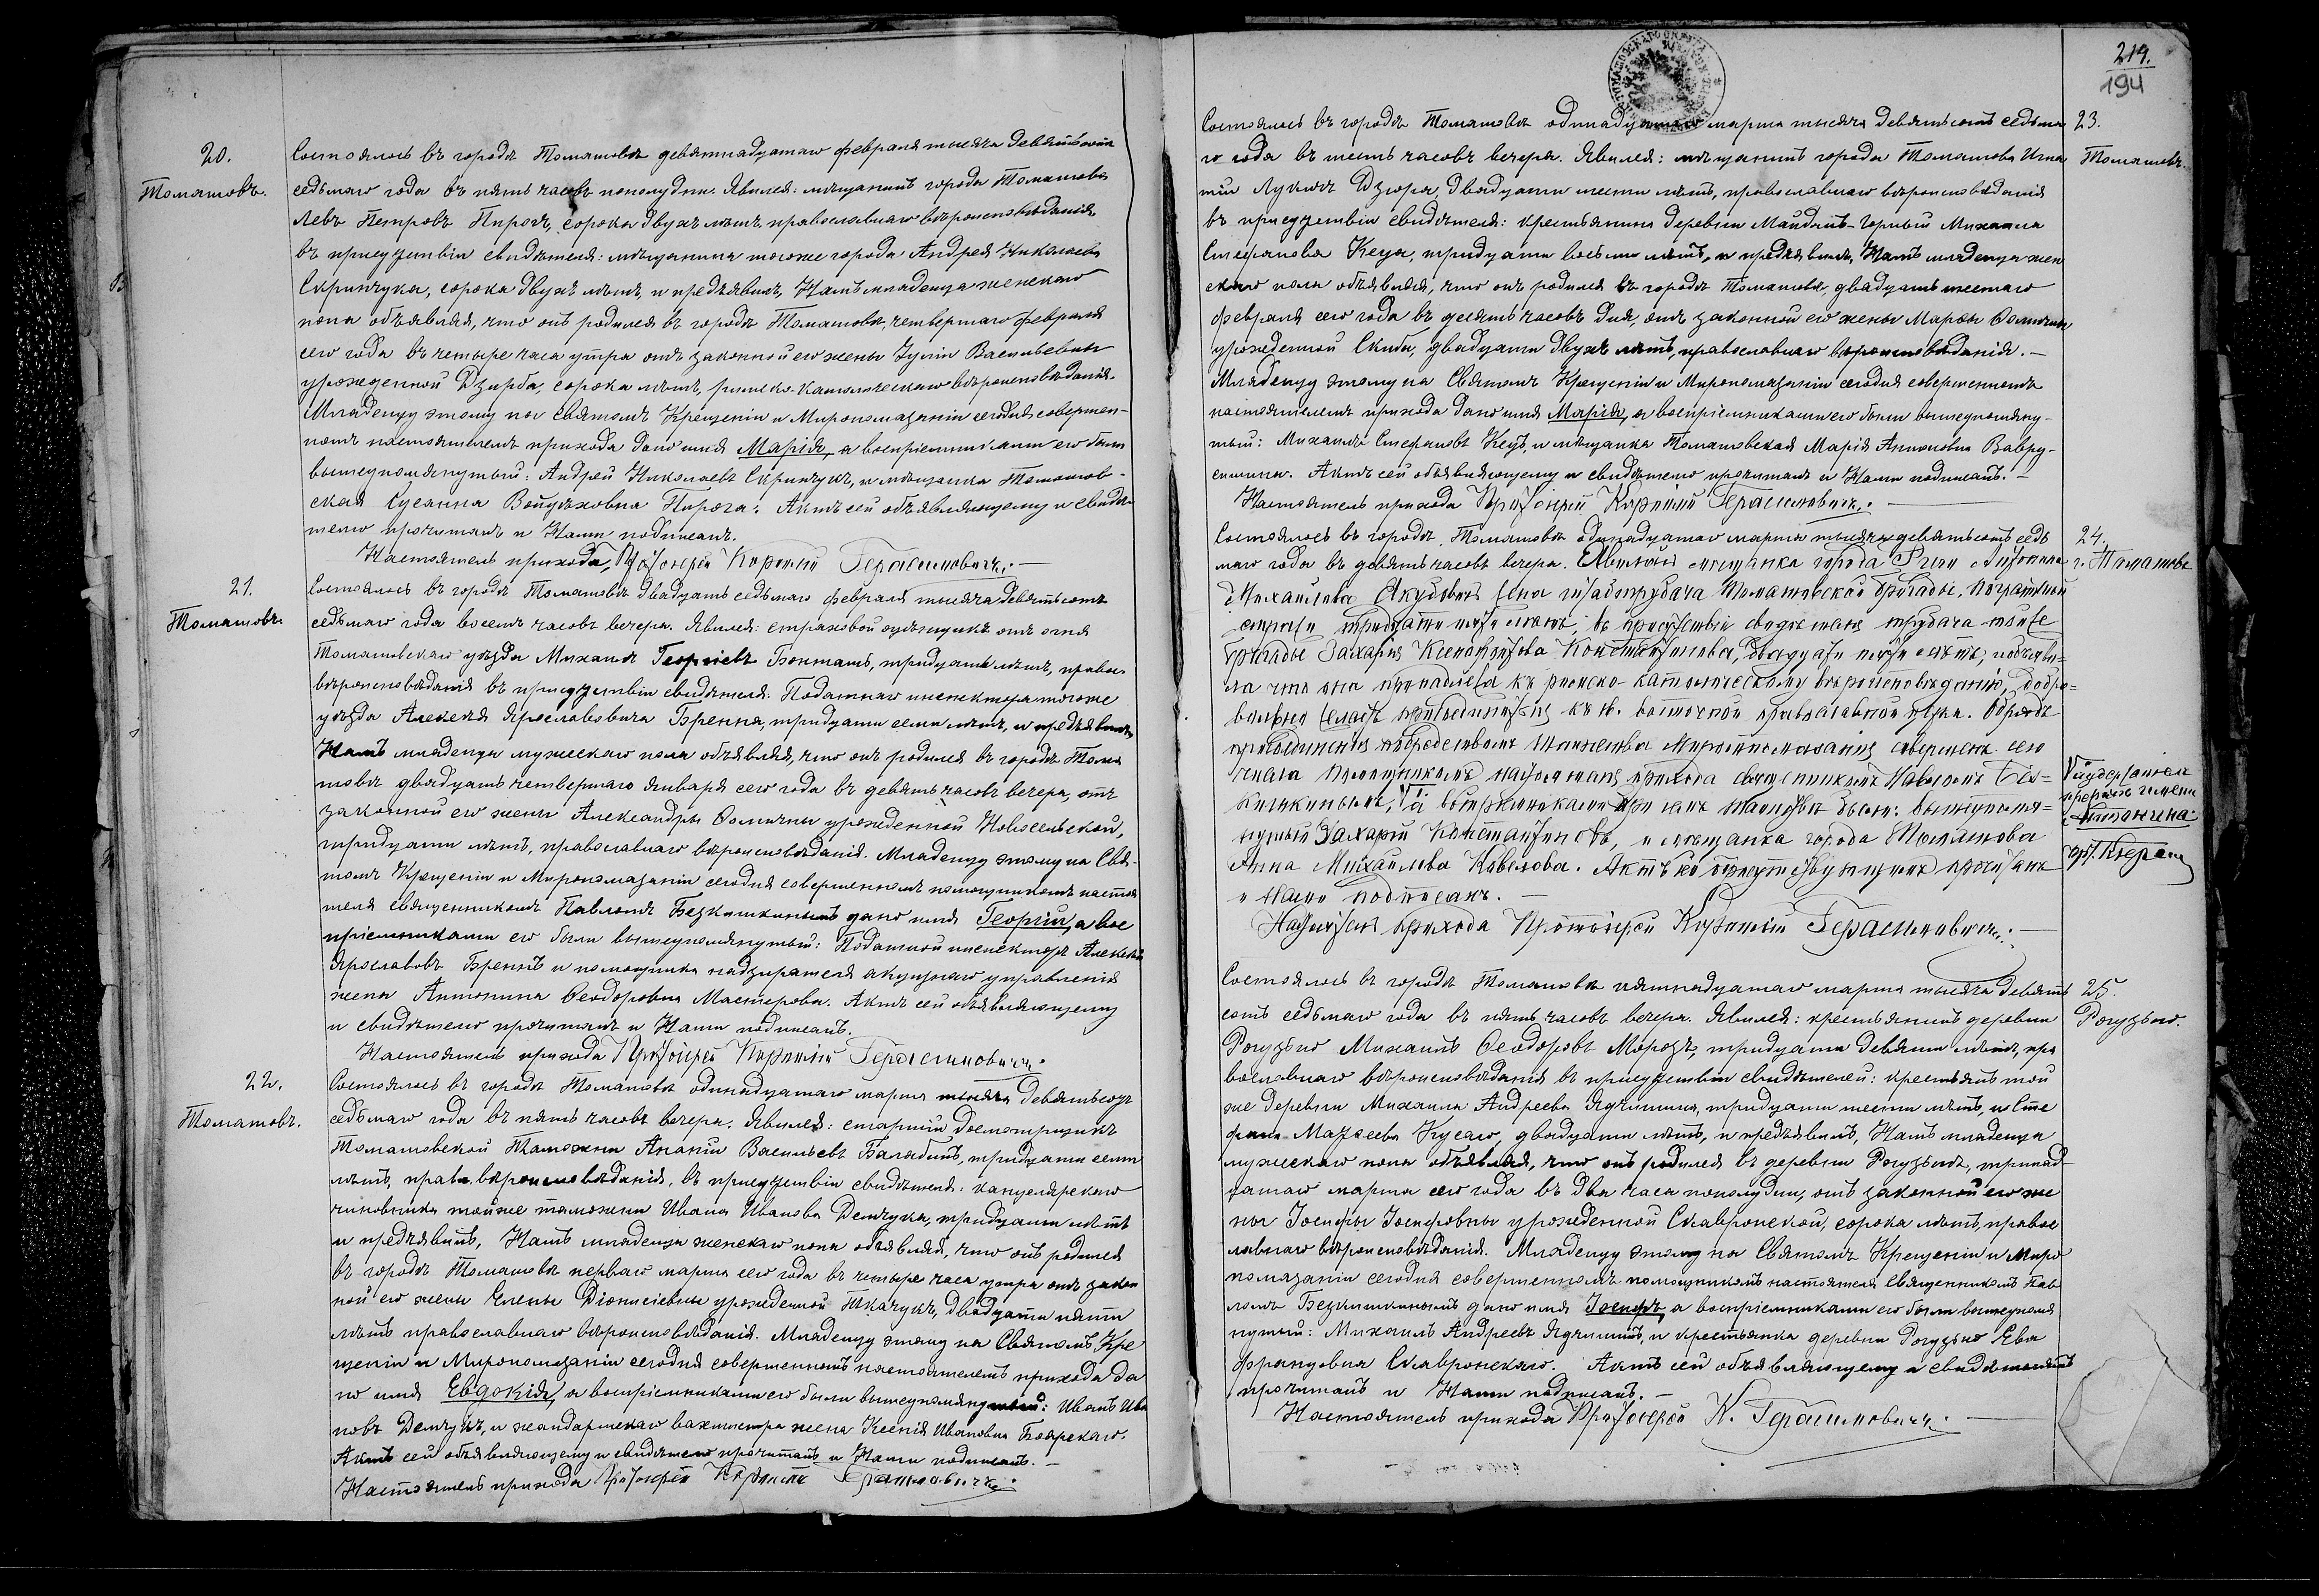 20.
Томашовъ.
Состоялось въ городѣ Томашовѣ девятнадцатаго февраля тысяча девятьсотъ
седьмаго года въ пять часовъ пополудни. Явился: мѣщанинъ города Томашова
Левъ Петровъ Пирогъ, сорока двухъ лѣтъ, православнаго вѣроисповѣданія,
въ присутствіи свидѣтеля: мѣщанина тогоже города Андрея Николаева
Скрипчука, сорока двухъ лѣтъ, и предъявилъ, Намъ младенца женскаго
пола объявляя, что онъ родился въ городѣ Томашовѣ, четвертаго февраля
сего года въ четыре часа утра отъ законной его жены Зулiи Васильевны
урожденной Дзирба, сорока лѣтъ, римско-католическаго вѣроисповѣданія.
Младенцу этому на Святомъ Крещеніи и Миропомазаніи сегодня совершен-
номъ настоятелемъ прихода дано имя Марія, а воспріемниками его были
вышеупомянутый: Андрей Николаевъ Скрипчукъ, и мѣщанка Томашов-
ская Сусанна Войцѣховна Пирога. Актъ сей объявляющему и свидѣ-
телю прочитанъ и Нами подписанъ.
Настоятель прихода, Протоіерей Корнилій Герасимовичъ.
21.
Томашовъ.
Состоялось въ городѣ Томашовѣ двадцать седьмаго февраля тысяча девятьсотъ
седьмаго года восемь часовъ вечера. Явился: страховой оцѣнщикъ отъ огня
Томашовскаго уѣзда Михаилъ Георгіевъ Бокташъ, тридцати лѣтъ, правос.
вѣроисповѣданія въ присутствіи свидѣтеля: Податнаго инспектора тогоже
уѣзда Алексѣя Ярославовича Бренна, тридцати семи лѣтъ, и предъявилъ,
Намъ младенца мужескаго пола объявляя, что онъ родился въ городѣ Тома
шовѣ двадцать четвертаго января сего года въ девять часовъ вечера, отъ
законной его жены Александры Ѳоминны урожденной Новосельской,
тридцати лѣтъ, православнаго вѣроисповѣданія. Младенцу этому на Свя-
томъ Крещеніи и Миропомазаніи сегодня совершенномъ помощникомъ настоя
теля священникомъ Павломъ Безкишкинымъ дано имя Георгій, а вос
пріемниками его были вышеупомянутый: Податной инспекторъ Алексѣй
Ярославовъ Бреннъ и помощника надзирателя акцизнаго управленія
жена Антонина Ѳеодоровна Мастерова. Актъ сей объявляющему
и свидѣтелю прочитанъ и Нами подписанъ.
Настоятель прихода Протоіерей Корнилій Герасимовичъ.
22.
Томашовъ.
Состоялось въ городѣ Томашовѣ одинадцатаго марта тысяча девятьсотъ
седьмаго года въ пять часовъ вечера. Явился: старшій досмотрщикъ
Томашовской Таможни Ананій Васильевъ Балабинъ, тридцати семи
лѣтъ, прав. вѣроисповѣданія, въ присутствіи свидѣтеля: канцелярскаго
чиновника тойже таможни Ивана Иванова Демчука, тридцати лѣтъ
и предъявилъ, Намъ младенца женскаго пола объявляя, что онъ родился
въ городѣ Томашовѣ перваго марта сего года въ четыре часа утра отъ закон
ной его жены Елены Діонисіевны урожденной Ткачукъ, двадцати пяти
лѣтъ православнаго вѣроисповѣданія. Младенцу этому на Святомъ Кре
щеніи и Миропомазаніи сегодня совершенномъ настоятелемъ прихода да
но имя Евдокія, а воспріемниками его были вышеупомянутый: Иванъ Ива
новъ Демчукъ, и жандармскаго вахмистра жена Ксенія Ивановна Боярскаго.
Актъ сей объявляющему и свидѣтелю прочитанъ и Нами подписанъ.
Настоятель прихода Протоіерей Корнилій Герасимовичъ.
219.
194
23.
Томашовъ.
Состоялось въ городѣ Томашовѣ одинадцатаго марта тысяча девятьсотъ седьма
го года въ шесть часовъ вечера. Явился: мѣщанинъ города Томашова Игна
тій Лукичъ Дзюра, двадцати шести лѣтъ, православнаго вѣроисповѣданія
въ присутствіи свидѣтеля: крестьянина деревни Майданъ-Горный Михаила
Стефанова Кеца, тридцати восьми лѣтъ, и предъявилъ, Намъ младенца жен
скаго пола объявляя, что онъ родился въ городѣ Томашовѣ, двадцать шестаго
февраля сего года въ десять часовъ дня, отъ законной его жены Марѳы Ѳоминны
урожденной Скиба, двадцати двухъ лѣтъ, православнаго вѣроисповѣданія.
Младенцу этому на Святомъ Крещеніи и Миропомазаніи сегодня совершенномъ
настоятелемъ прихода дано имя Марія, а воспріемниками его были вышеупомяну-
тый: Михаилъ Стефановъ Кецъ, и мѣщанка Томашовская Марія Антоновна Вавру-
сишина. Актъ сей объявляющему и свидѣтелю прочитанъ и Нами подписанъ.
Настоятель прихода Протоіерей Корнилій Герасимовичъ.
24.
г. Томашовъ
Состоялось въ городѣ Томашовѣ одинадцатаго марта тысяча девятьсотъ седь
маго года въ девять часовъ вечера. Явилась мѣщанка города Риги Антонина
Михаилова Якубовичъ жена штабъ-трубача Томашовской бригады, пограничной
стражи тридцати пяти лѣтъ, въ присутствіи свидѣтеля трубача тойже
бригады Захарія Ксенофонтова Константинова, двадцати пяти лѣтъ, и объяви-
ла что она принадлежа къ римско-католическому вѣроисповѣданію, добро-
вольно желаетъ присоединиться къ св. восточной православной церкви. Обрядъ
присоединенія посредствомъ таинства Миропомазанія совершенъ сего
числа помощникомъ настоятеля прихода священникомъ Павломъ Без-
кишкинымъ, а воспріемниками при семъ таинствѣ были: вышеупомя-
нутый Захарій Константиновъ, и мѣщанка города Томашова
Анна Михаилова Ковелова. Актъ сей прочитанъ
и Нами подписанъ.
Настоятель прихода Протоіерей Корнилій Герасимовичъ.
прежнее имени
Антонина
25.
Рогузьно.
Состоялось въ городѣ Томашовѣ пятнадцатаго марта тысяча девять
сотъ седьмаго года въ пять часовъ вечера. Явился: крестьянинъ деревни
Рогузьно Михаилъ Ѳеодоровъ Морозъ, тридцати девяти лѣтъ, пра
вославнаго вѣроисповѣданія въ присутствіи свидѣтелей: крестьянъ той
же деревни Михаила Андреева Ядчишина, тридцати шести лѣтъ, и Сте
фана Маѳѳеева Кусаго, двадцати лѣтъ, и предъявилъ, Намъ младенца
мужескаго пола объявляя, что онъ родился въ деревни Рогузьнѣ, тринад-
цатаго марта сего года въ два часа пополудни, отъ законной его же
ны Іосифы Іосифовны урожденной Скавронской, сорока лѣтъ, правос
лавнаго вѣроисповѣданія. Младенцу этому на Святомъ Крещеніи и Миро
помазаніи сегодня совершенномъ помощникомъ настоятеля Священникомъ Пав
ломъ Безкишкинымъ дано имя Іосифъ, а воспріемниками его были вышеупомя
нутый: Михаилъ Андреевъ Ядчишинъ, и крестьянка деревни Рогузьно Ева
Францовна Скавронскаго. Актъ сей объявляющему и свидѣтелямъ
прочитанъ и Нами подписанъ.
Настоятель прихода Протоіерей К. Герасимовичъ.